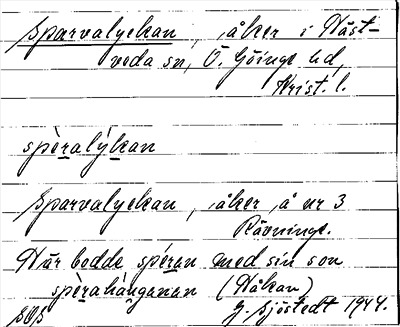 Sparvalyckan, åker i Häst-
veda sn, Ö. Göinge hd,
Krist. l.
spèralýkan
Sparvalyckan, åker å nr 3
Rävninge.
Här bodde spéran med sin son
spèrahåŋganan (Håkan)
G. Sjöstedt 1944.